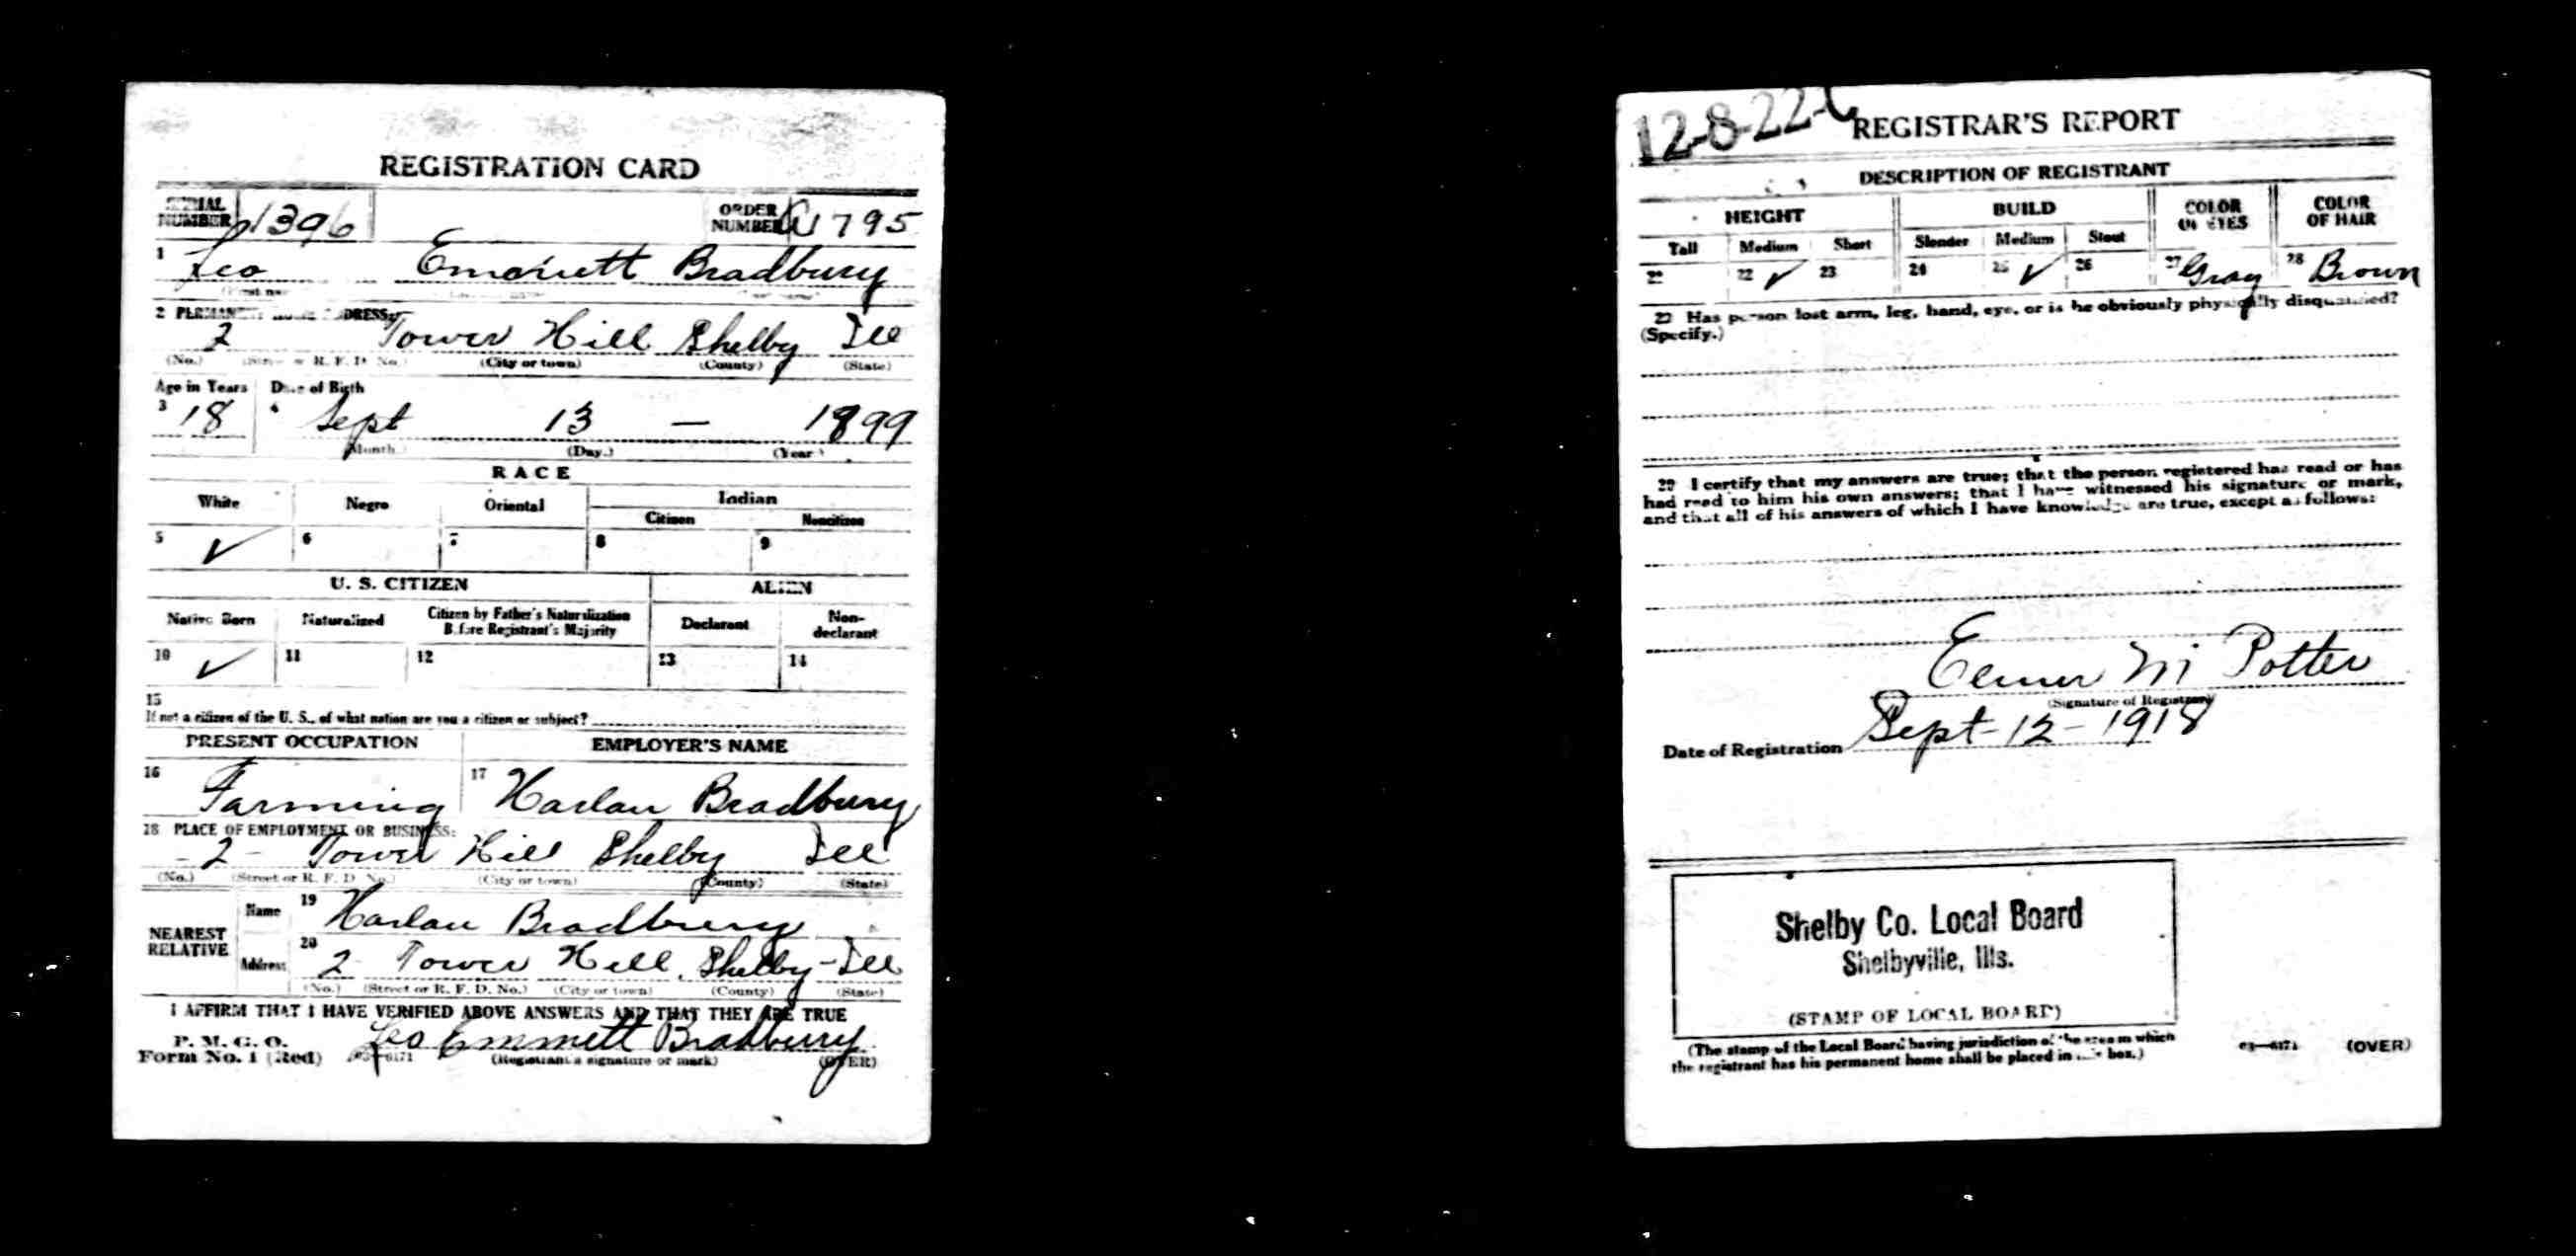 REGISTRATION CARD
SERIAL NUMBER 1396 ORDER NUMBER 1795
1 Leo Emmett Bradbury
2 PERMANENT HOME ADDRESS:
2 Tower Hill Shelby Ill
(No.) (Street or R. F. D. No.) (City or town) (County) (State)
Age in Years Date of Birth
3 18 4 Sept 13 — 1899
(Month.) (Day.) (Year.)
RACE
White Negro Oriental Indian
Citizen Noncitizen
5 ✓ 6 7 8 9
U. S. CITIZEN ALIEN
Native Born Naturalized Citizen by Father's Naturalization Before Registrant's Majority Declarant Non-declarant
10 ✓ 11 12 13 14
15
If not a citizen of the U. S., of what nation are you a citizen or subject?
PRESENT OCCUPATION EMPLOYER'S NAME
16 Farming 17 Harlan Bradbury
18 PLACE OF EMPLOYMENT OR BUSINESS:
- 2 - Tower Hill Shelby Ill
(No.) (Street or R. F. D. No.) (City or town) (County) (State)
NEAREST RELATIVE Name 19 Harlan Bradbury
Address 20 2 Tower Hill, Shelby - Ill
(No.) (Street or R. F. D. No.) (City or town) (County) (State)
I AFFIRM THAT I HAVE VERIFIED ABOVE ANSWERS AND THAT THEY ARE TRUE
P. M. G. O.
Form No. 1 (Red) 03—6171 Leo Emmett Bradbury
(Registrant's signature or mark) (OVER)
12-8-22-C REGISTRAR'S REPORT
DESCRIPTION OF REGISTRANT
HEIGHT BUILD COLOR OF EYES COLOR OF HAIR
Tall Medium Short Slender Medium Stout
21 22 ✓ 23 24 25 ✓ 26 27 Gray 28 Brown
29 Has person lost arm, leg, hand, eye, or is he obviously physically disqualified?
(Specify.)
30 I certify that my answers are true; that the person registered has read or has
had read to him his own answers; that I have witnessed his signature or mark,
and that all of his answers of which I have knowledge are true, except as follows:
Elmer M Potter
(Signature of Registrar)
Date of Registration Sept - 12 - 1918
Shelby Co. Local Board
Shelbyville, Ills.
(STAMP OF LOCAL BOARD)
(The stamp of the Local Board having jurisdiction of the area in which
the registrant has his permanent home shall be placed in this box.)
03—6171 (OVER)